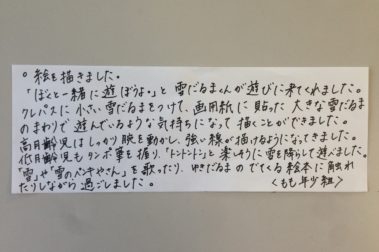 ○絵を描きました。
「ぼくと一緒に遊ぼうよ。」と雪だるまくんが遊びに来てくれました。
クレパスに小さい雪だるまをつけて、画用紙に貼った大きな雪だるま
のまわりで遊んでいるような気持ちになって描くことができました。
高月齢児はしっかり腕を動かし、強い線が描けるようになってきました。
低月齢児もタンポ筆を握り、「トントントン」と楽しそうに雪を降らして遊びました。
「雪」や「雪のペンキやさん」を歌ったり、ゆきだるまのでてくる絵本に触れ
たりしながら過ごしました。
〈もも年少組〉